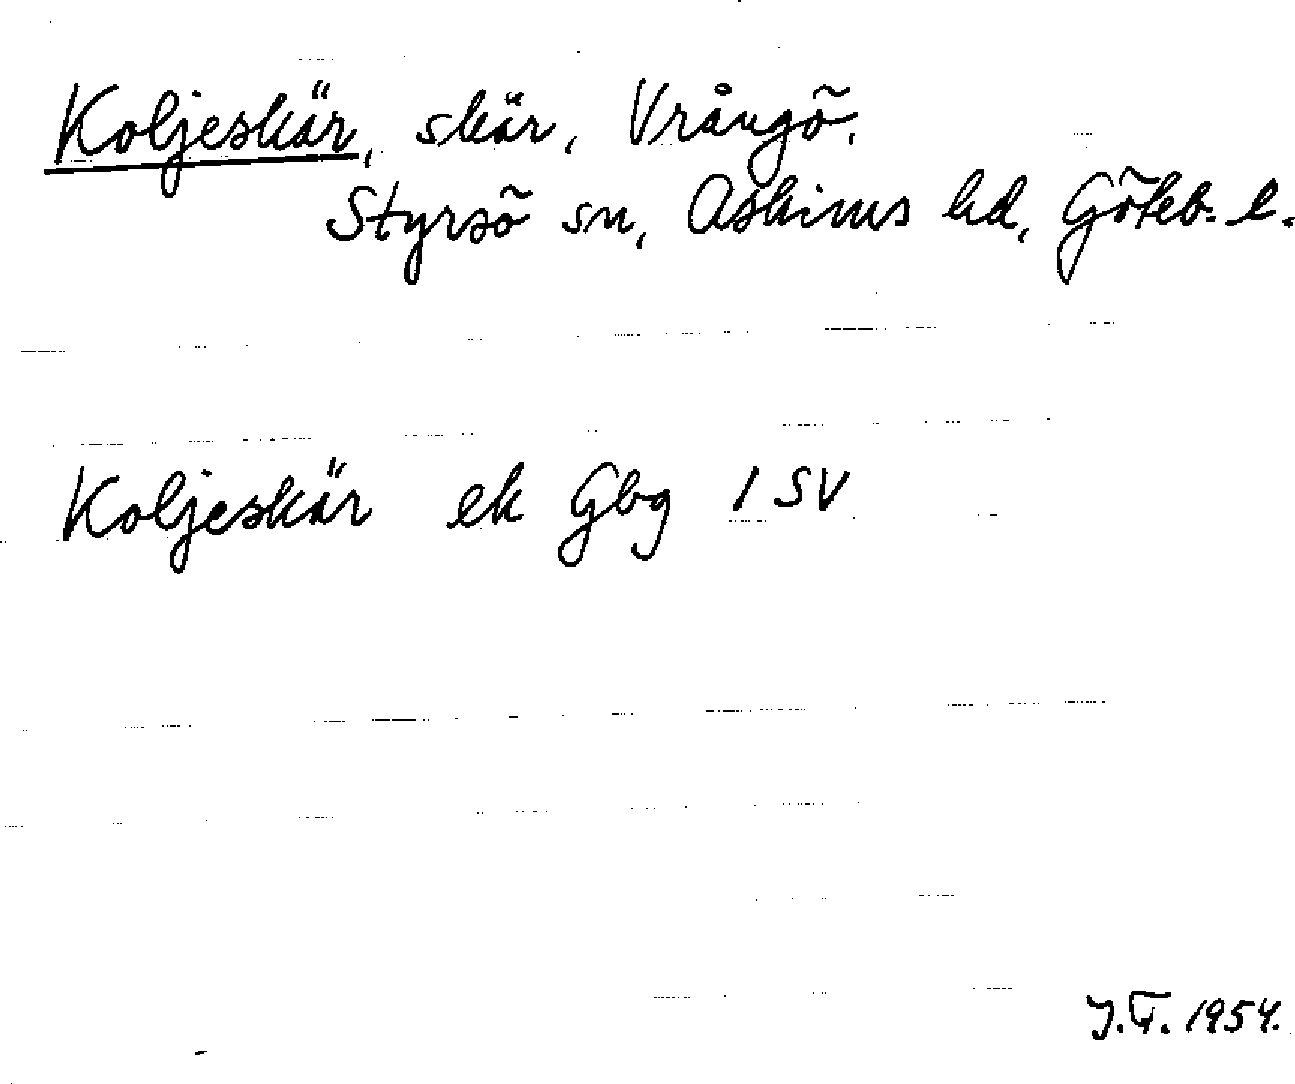 Koljeskär, skär, Vrångö,
Styrsö sn, Askims hd, Göteb. l.
Koljeskär ek Gbg 1 SV
J.T. 1954.